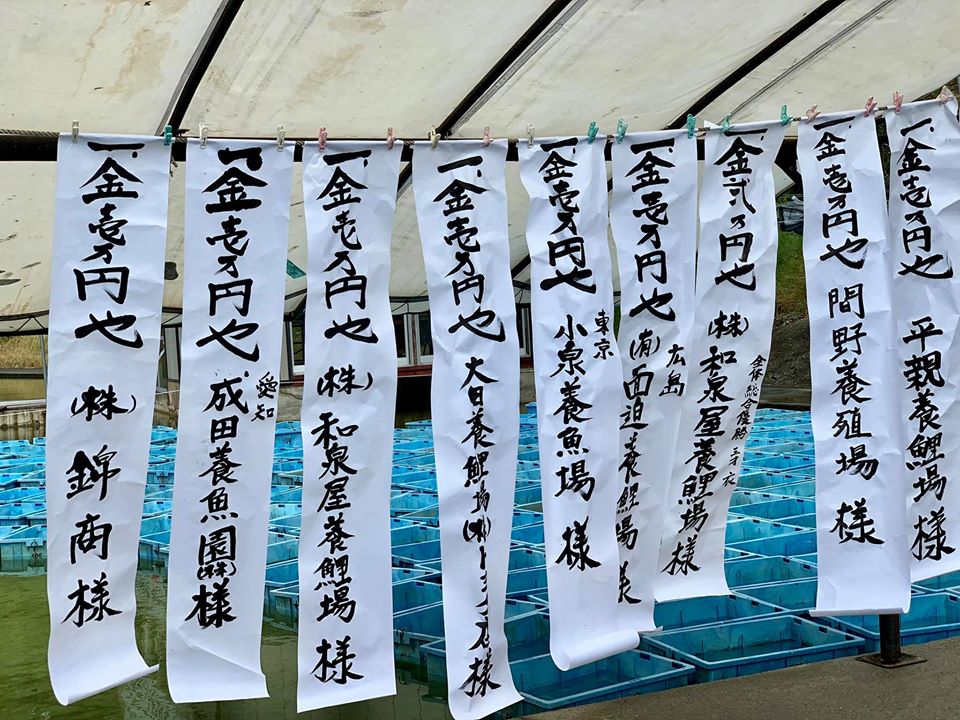 一、金壱万円也 平親養鯉場 様
一、金壱万円也 間野養殖場 様
全体総合優勝
一、金弐万円也 (株)和泉屋養鯉場 様
広島
一、金壱万円也 (有)面迫養鯉場 様
東京
一、金壱万円也 小泉養魚場 様
一、金壱万円也 大日養鯉場(株) 様
一、金壱万円也 (株)和泉屋養鯉場 様
愛知
一、金壱万円也 成田養魚園(株)様
一、金壱万円也 (株)錦商 様